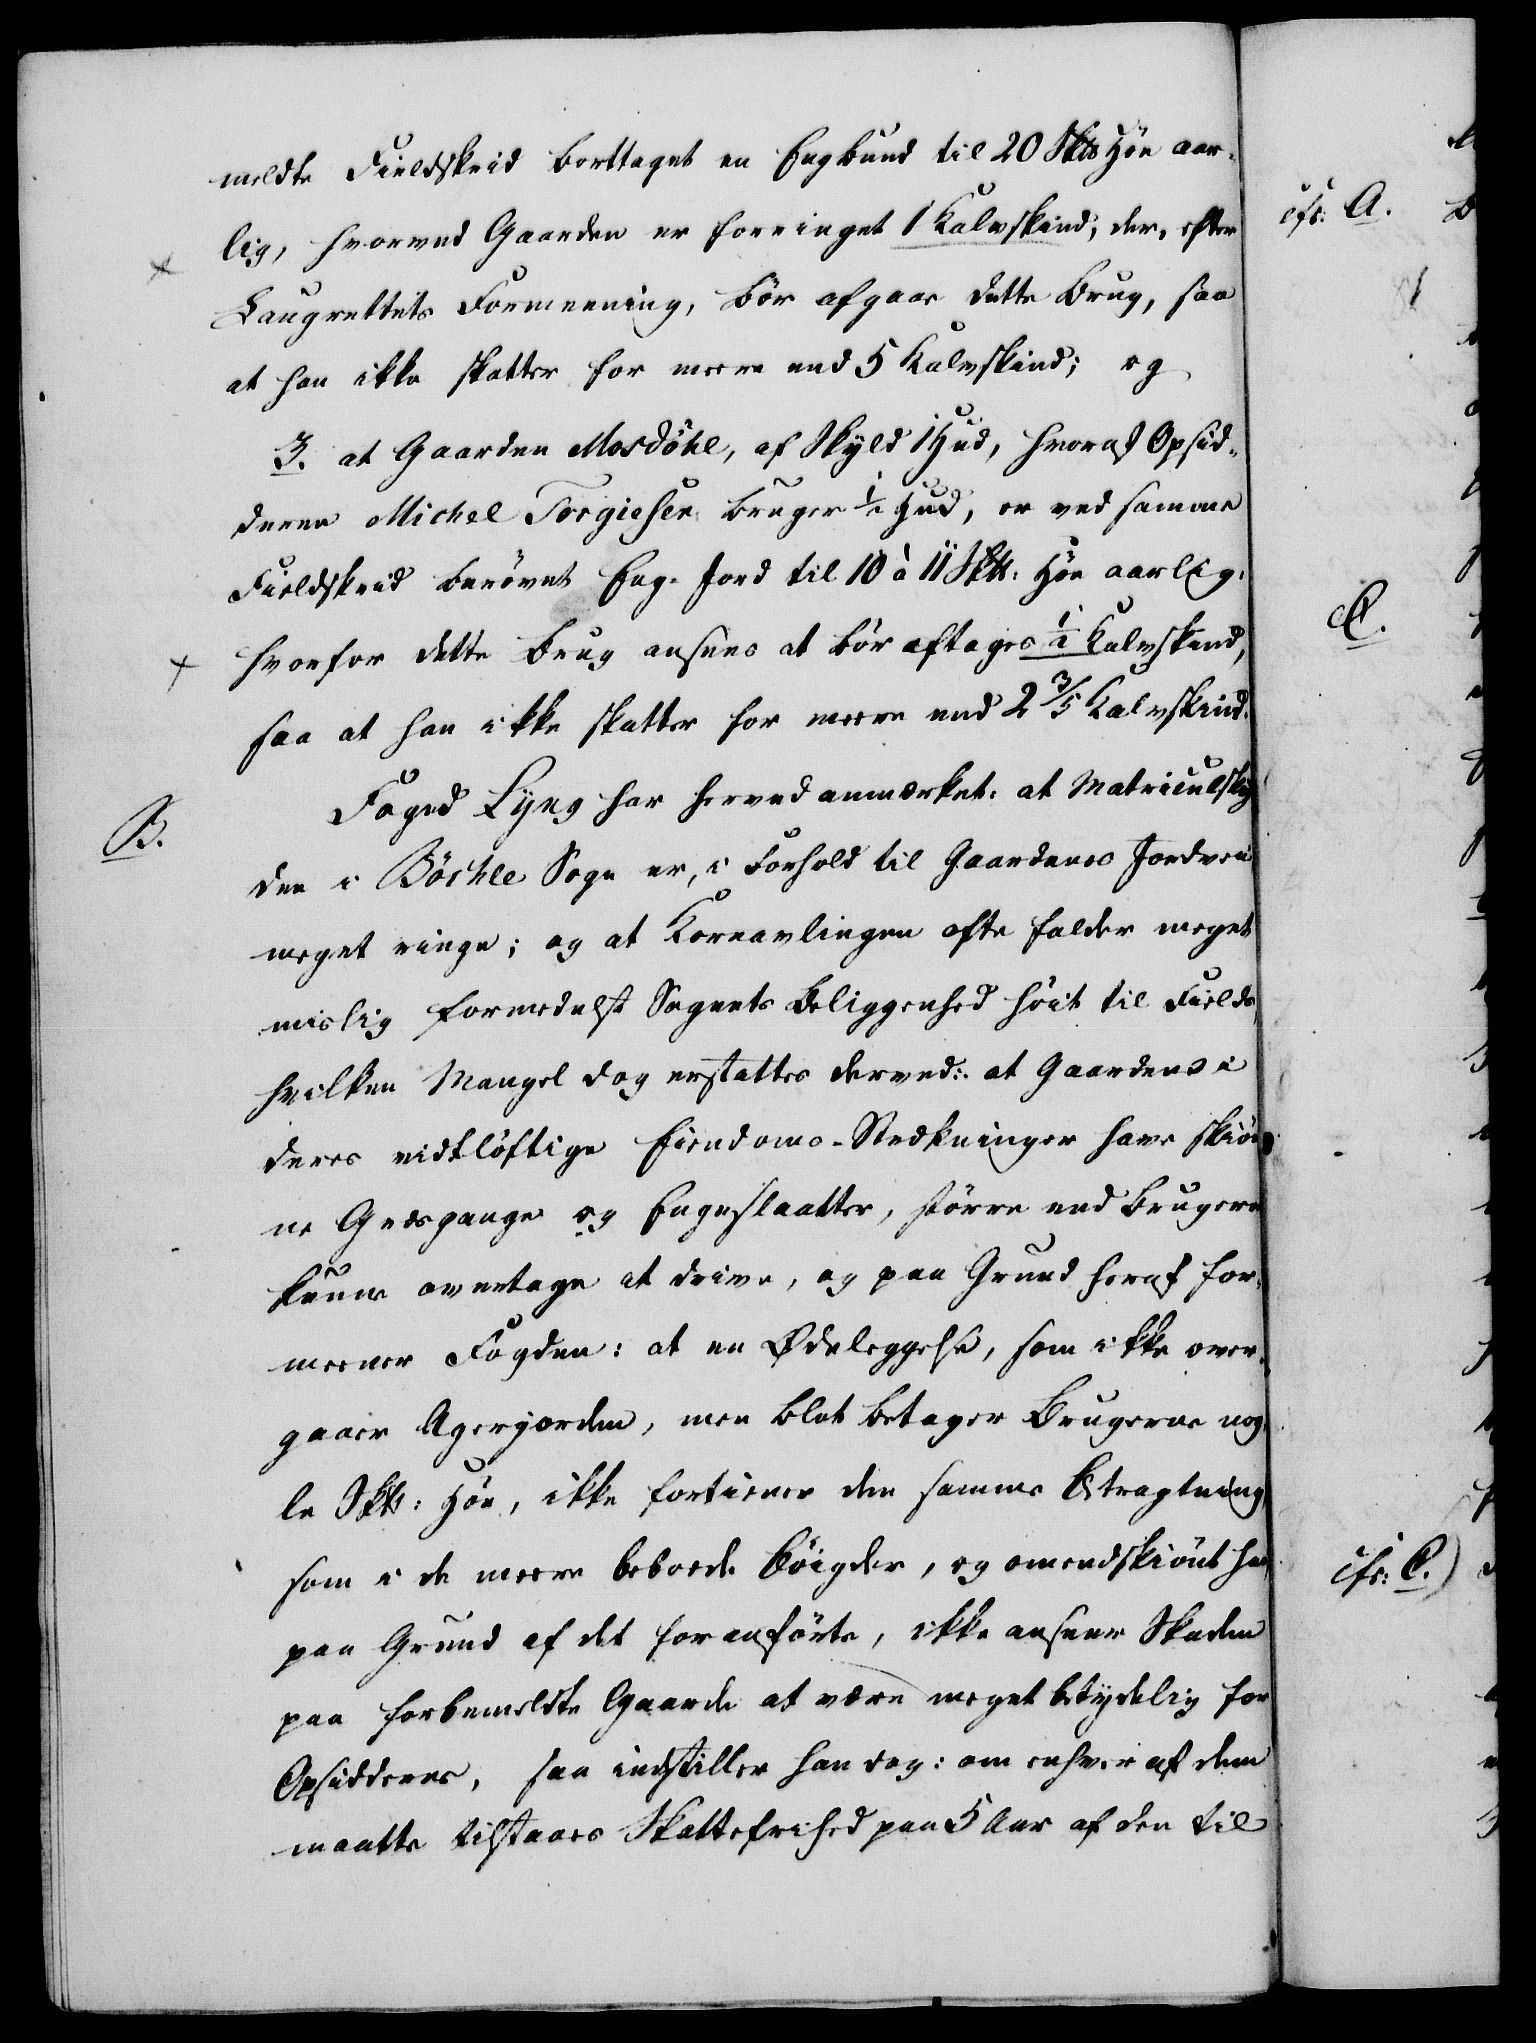 meldte Fieldskrid borttaget en Engbund til 20 Skt Höe aar-
lig, hvorved Gaarden er forringet 1 Kalvskind, der, efter
Laugrettets Formeening, bör afgaae dette Brug, saa
at han ikke skatter for meere end 5 Kalvskind; og
3. at Gaarden Mosdöhl, af Skyld 1 Hud, hvoraf Opsid-
deren Michel Torgiesen bruger ½ Hud, er ved samme
Fieldskrid berövet Eng-Jord til 10 à 11 Skt: Höe aarlig:
hvorfor dette Brug ansees at bör aftages ½ Kalvskind,
saa at han ikke skatter for meere end 2 3/5 Kalvskind.
B.
Foged Lyng har herved anmærket: at Matriculskyl
den i Böehle Sogn er, i Forhold til Gaardenes Jordvei
meget ringe; og at Kornavlingen ofte falder meget
mislig formedelst Sognets Beliggenhed höit til Fields,
hvilken Mangel dog erstattes derved: at Gaardene i
deres vidtlöftige Eiendoms-Strækninger have skiön
ne Græsgange og Engeslaatter, större end Brugerne
kunne overtage at drive, og paa Grund heraf for-
meener Fogden: at en Ödeleggelse, som ikke over-
gaaer Agerjorden, men blot betager Brugerne nog-
le Skt: Höe, ikke fortiener den samme Betragtning,
som i de meere beboede Böigder, og omendskiönt han
paa Grund af det foranförte, ikke anseer Skaden
paa forbemeldte Gaarde at være meget betydelig for
Opsidderne, saa indstiller han dog: om enhver af dem
maatte tilstaaes Skattefrihed paa 5 Aar af den til
cfr: A.
C.
cfr: C.)